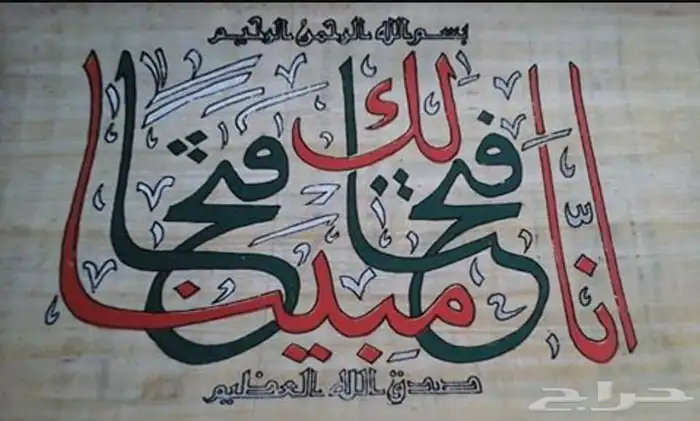 بسم الله الرحمن الرحيم
إنا فتحنا لك فتحا مبينا
صدق الله العظيم
حراج